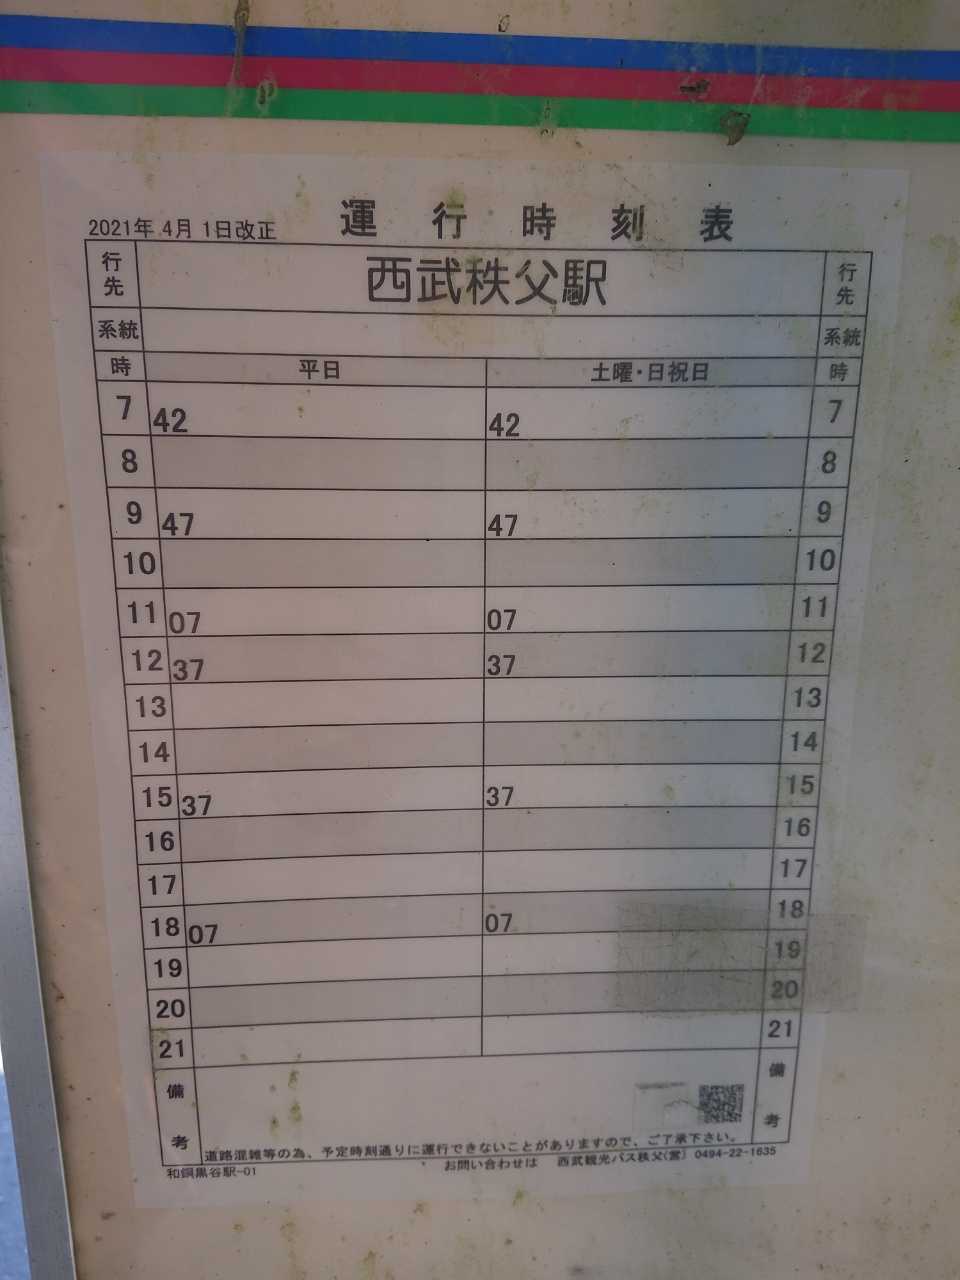 2021年 4月 1日改正 運行時刻表
行先 西武秩父駅 行先
系統 系統
時 平日 土曜・日祝日 時
7 42 42 7
8 8
9 47 47 9
10 10
11 07 07 11
12 37 37 12
13 13
14 14
15 37 37 15
16 16
17 17
18 07 07 18
19 19
20 20
21 21
備考 備考
道路混雑等の為、予定時刻通りに運行できないことがありますので、ご了承下さい。
お問い合わせは 西武観光バス秩父(営) 0494-22-1635
和銅黒谷駅-01